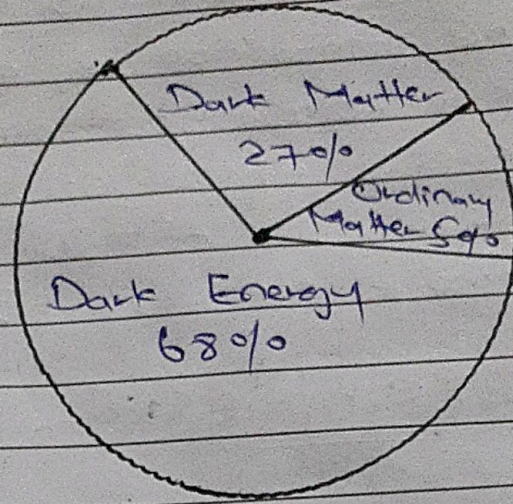 Dark Matter
27%
Ordinary
Matter 5%
Dark Energy
68%